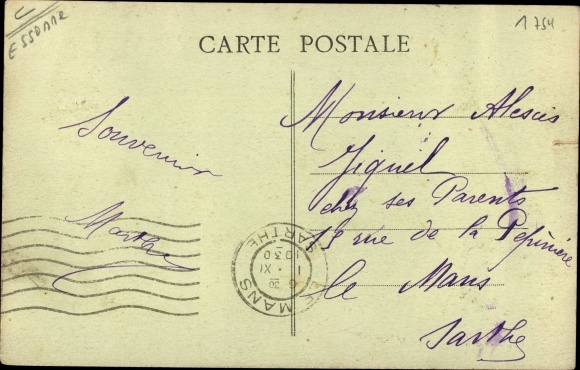 ESSONNE
1754
CARTE POSTALE
Souvenir
Marthe
Monsieur Alexis
Jiquel
chez ses Parents
13 rue de la Pepinière
le Mans
Sarthe
MANS
SARTHE
1030
1 - XI